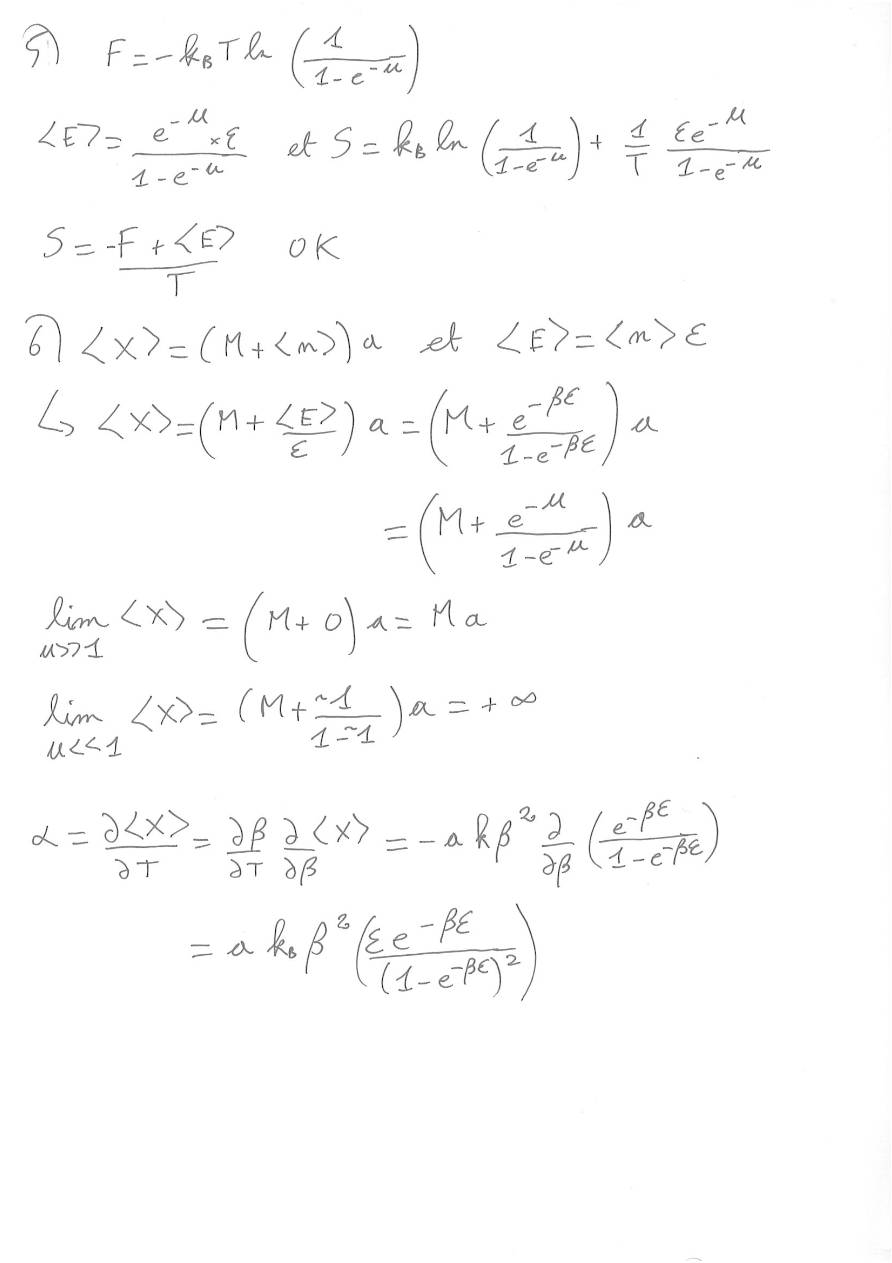 5) F = -k_B T ln (1/(1-e^{-u}))
<E> = (e^{-u} × ε)/(1-e^{-u}) et S = k_B ln (1/(1-e^{-u})) + 1/T (εe^{-u})/(1-e^{-u})
S = (-F + <E>)/T OK
6) <X> = (M + <n>) a et <E> = <n> ε
↳ <X> = (M + <E>/ε) a = (M + e^{-βε}/(1-e^{-βε})) a
= (M + e^{-u}/(1-e^{-u})) a
lim_{u>>1} <X> = (M + 0) a = Ma
lim_{u<<1} <X> = (M + ~1/(1-~1)) a = +∞
α = ∂<X>/∂T = ∂β/∂T ∂/∂β <X> = -a k β² ∂/∂β (e^{-βε}/(1-e^{-βε}))
= a k_B β² (εe^{-βε}/(1-e^{-βε})²)